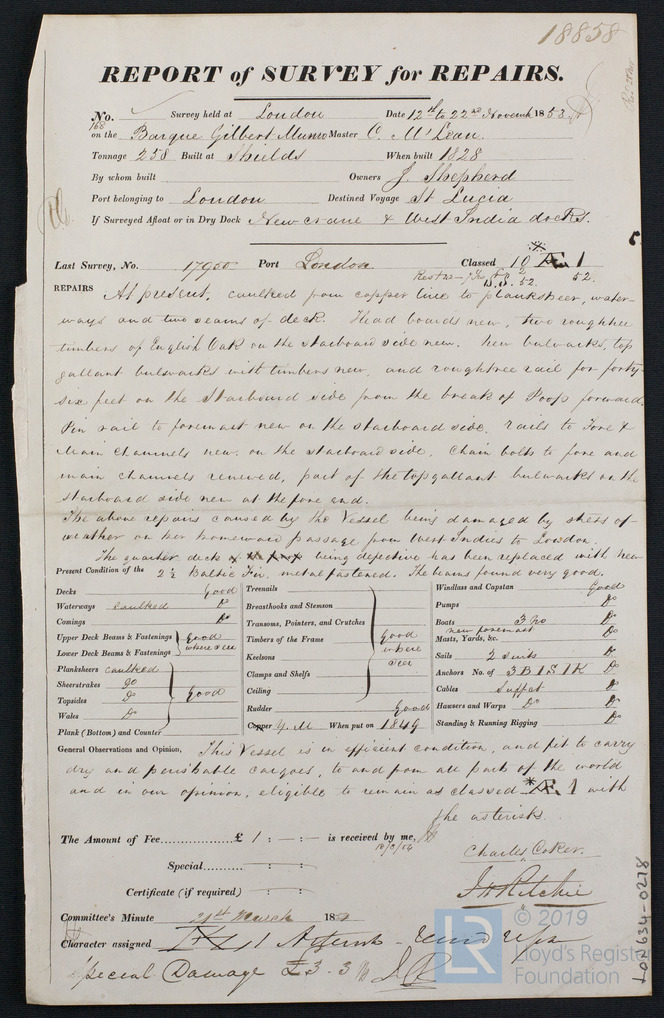 18858
REPORT of SURVEY for REPAIRS.
No. Survey held at London Date 12th to 22nd Novemb 1853
168
on the Barque Gilbert Munro Master C. McLean
Tonnage 258 Built at Shields When built 1828
By whom built Owners J. Shepherd
Port belonging to London Destined Voyage St Lucia
If Surveyed Afloat or in Dry Dock New crane & West India docks.
Last Survey, No. 17900 Port London Classed 10 Æ 1
52.
REPAIRS At present, caulked from copper line to planksheer, water-
ways and two seams of deck. Head boards new, two roughtree
timbers of English Oak on the starboard side new. New bulwarks, top
gallant bulwarks with timbers new, and roughtree rail for forty
six feet on the Starboard side from the break of Poop forward.
Pin rail to foremast new on the starboard side, rails to Fore &
Main Channels new, on the starboard side, Chain bolts to fore and
main channels renewed, part of the topgallant bulwarks on the
starboard side new at the fore end.
The above repairs caused by the Vessel being damaged by stress of
weather on her homeward passage from West Indies to London.
The quarter deck being defective has been replaced with new
2½ Baltic Fir, metal fastened. The beams found very good.
Present Condition of the
Decks Good
Waterways caulked Do
Comings Do
Upper Deck Beams & Fastenings
Lower Deck Beams & Fastenings
Good where seen
Planksheers caulked
Sheerstrakes Do
Topsides Do
Wales Do
Plank (Bottom) and Counter
Good
Treenails
Breasthooks and Stemson
Transoms, Pointers, and Crutches
Timbers of the Frame
Keelsons
Clamps and Shelfs
Ceiling
Good
where
seen
Rudder Good
Copper Y. M When put on 1849
Windlass and Capstan Good
Pumps Do
Boats 3 No Do
new foremast
Masts, Yards, &c. Do
Sails 2 suits Do
Anchors No. of 3 B 1 S 1 K Do
Cables Suffct Do
Hausers and Warps Do Do
Standing & Running Rigging Do
General Observations and Opinion, This Vessel is in efficient condition, and fit to carry
dry and perishable cargoes, to and from all parts of the world
and in our opinion, eligible to remain as classed *Æ 1 with
the asterisk.
The Amount of Fee £ 1 : - : - is received by me,
Special : :
Charles Coker.
Certificate (if required) : :
J H Ritchie
Committee's Minute 21st March 185
Character assigned
Special Damage £3-3
LON634-0278
© 2019
LR Lloyd's Register
Foundation